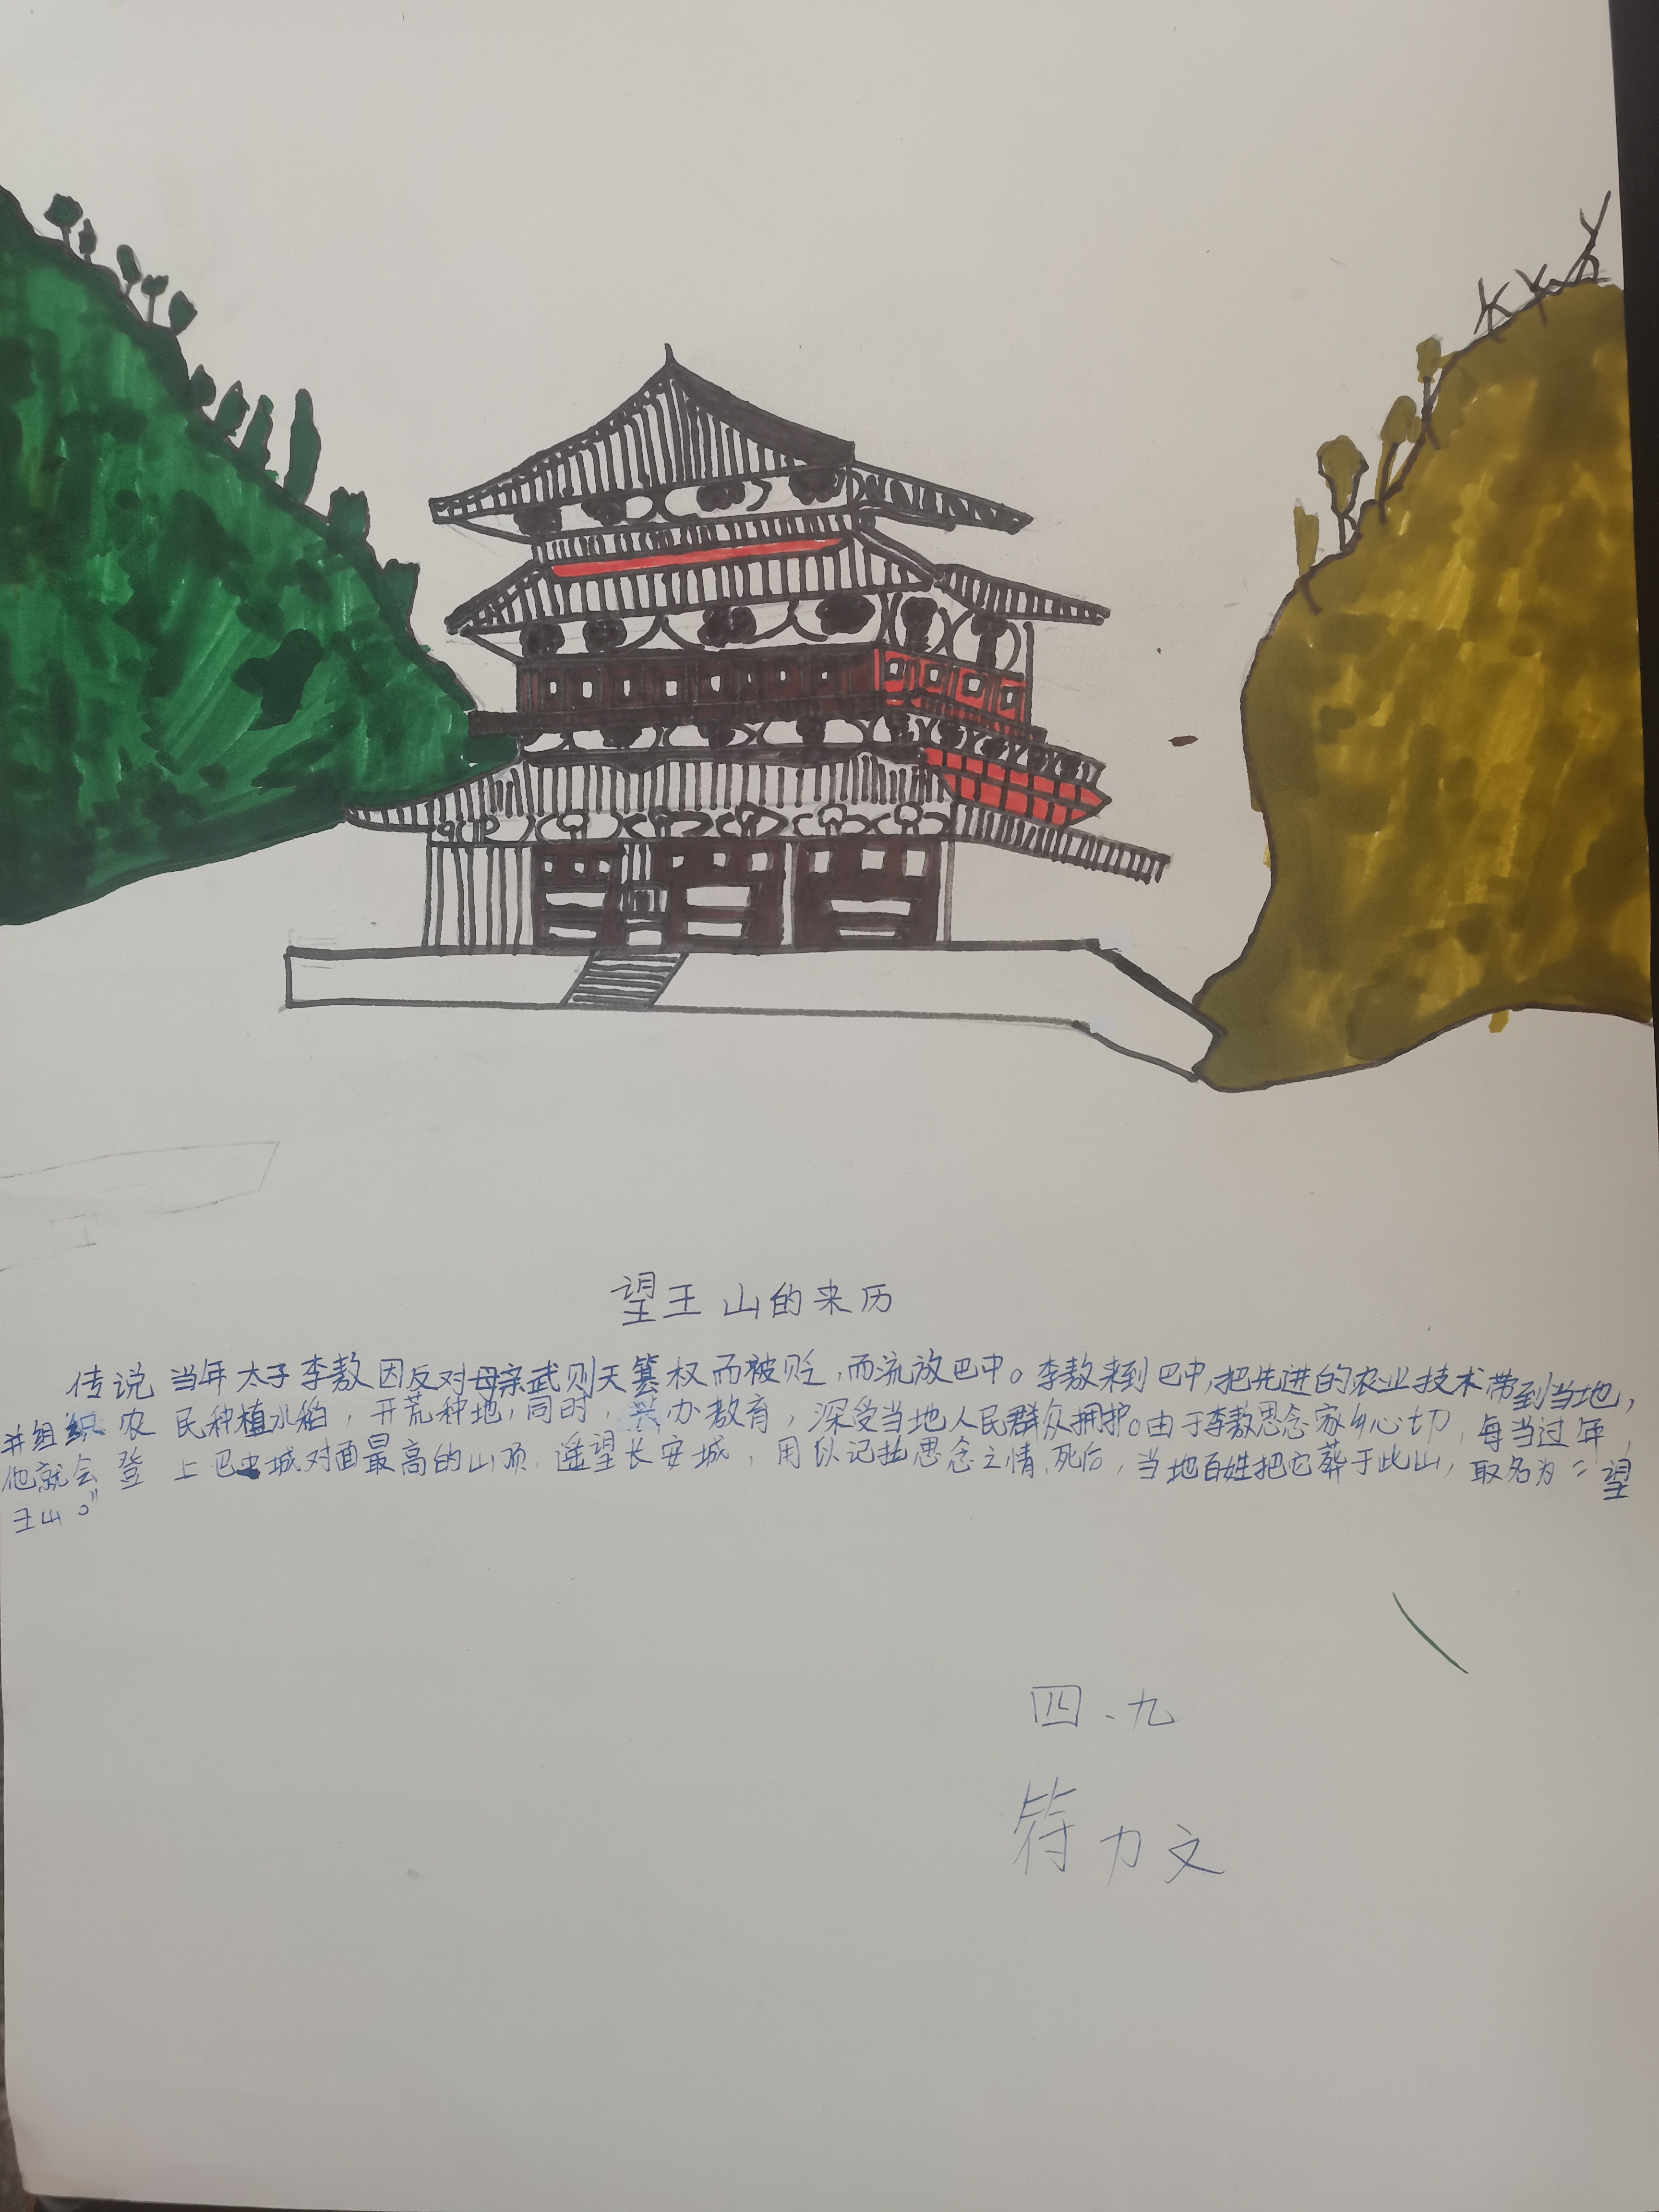 望王山的来历
传说当年太子李敖因反对母亲武则天篡权而被贬，而流放巴中。李敖来到巴中，把先进的农业技术带到当地，
并组织农民种植水稻，开荒种地，同时，兴办教育，深受当地人民群众拥护。由于李敖思念家乡心切，每当过年，
他就会登上巴中城对面最高的山顶，遥望长安城，用以记挂思念之情、死后，当地百姓把它葬于此山，取名为“望
王山。”
四、九
符力文